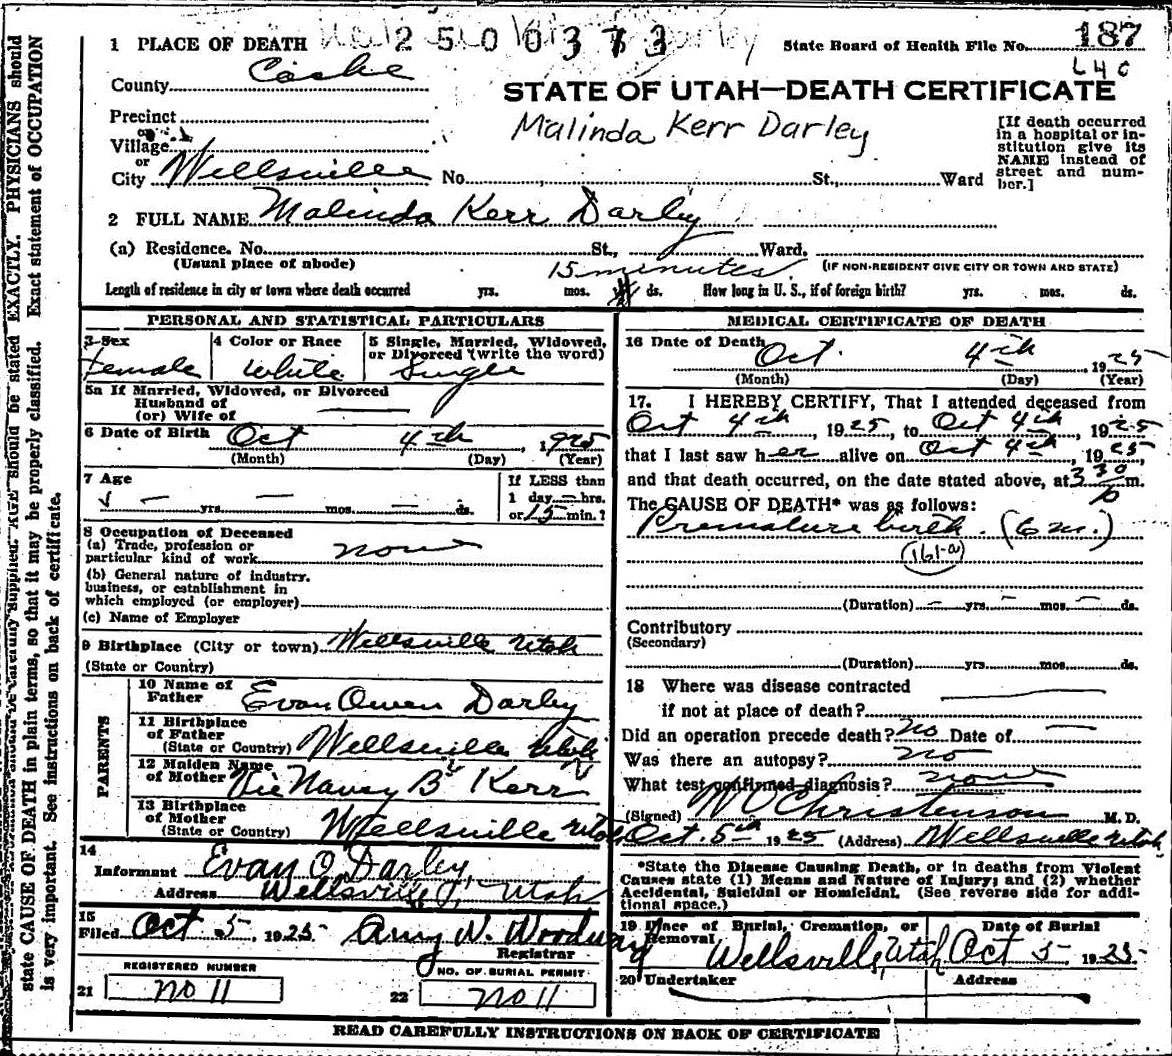 state CAUSE OF DEATH in plain terms, so that it may be properly classified. Exact statement of OCCUPATION
is very important. See instructions on back of certificate.
should be stated EXACTLY. PHYSICIANS should
2500373
1 PLACE OF DEATH
State Board of Health File No. 187
County Cache
L40
STATE OF UTAH—DEATH CERTIFICATE
Precinct
Malinda Kerr Darley
[If death occurred
in a hospital or in-
stitution give its
NAME instead of
street and num-
ber.]
Village
or
City Wellsville No. St., Ward
2 FULL NAME Malinda Kerr Darley
(a) Residence. No. St., Ward.
(Usual place of abode) 15 minutes (IF NON-RESIDENT GIVE CITY OR TOWN AND STATE)
Length of residence in city or town where death occurred yrs. mos. ds. How long in U. S., if of foreign birth? yrs. mos. ds.
PERSONAL AND STATISTICAL PARTICULARS
3 Sex Female
4 Color or Race White
5 Single, Married, Widowed,
or Divorced (write the word)
Single
5a If Married, Widowed, or Divorced
Husband of
(or) Wife of
6 Date of Birth Oct 4th, 1925
(Month) (Day) (Year)
7 Age
yrs. mos. ds.
If LESS than
1 day — hrs.
or 15 min.?
8 Occupation of Deceased
(a) Trade, profession or
particular kind of work none
(b) General nature of industry,
business, or establishment in
which employed (or employer)
(c) Name of Employer
9 Birthplace (City or town) Wellsville Utah
(State or Country)
PARENTS
10 Name of
Father Evan Owen Darley
11 Birthplace
of Father
(State or Country) Wellsville Utah
12 Maiden Name
of Mother Nancy B Kerr
13 Birthplace
of Mother
(State or Country) Wellsville Utah
14
Informant Evan O Darley,
Address Wellsville, Utah
15
Filed Oct 5, 1925 Amy W. Woodward
Registrar
REGISTERED NUMBER
21 No 11
NO. OF BURIAL PERMIT
22 No 11
MEDICAL CERTIFICATE OF DEATH
16 Date of Death Oct. 4th, 1925
(Month) (Day) (Year)
17. I HEREBY CERTIFY, That I attended deceased from
Oct 4th, 1925, to Oct 4th, 1925
that I last saw her alive on Oct 4th, 1925,
and that death occurred, on the date stated above, at 3 30 p m.
The CAUSE OF DEATH* was as follows:
Premature birth. (6 m.)
161-a
(Duration) — yrs. — mos. — ds.
Contributory
(Secondary)
(Duration) yrs. mos. ds.
18 Where was disease contracted
if not at place of death?
Did an operation precede death? no Date of —
Was there an autopsy? no
What test confirmed diagnosis? none
(Signed) Christenson M. D.
Oct. 5th 1925 (Address) Wellsville Utah
*State the Disease Causing Death, or in deaths from Violent
Causes state (1) Means and Nature of Injury; and (2) whether
Accidental, Suicidal or Homicidal. (See reverse side for addi-
tional space.)
19 Place of Burial, Cremation, or
Removal Wellsville, Utah
Date of Burial
Oct 5 1925
20 Undertaker Address
READ CAREFULLY INSTRUCTIONS ON BACK OF CERTIFICATE